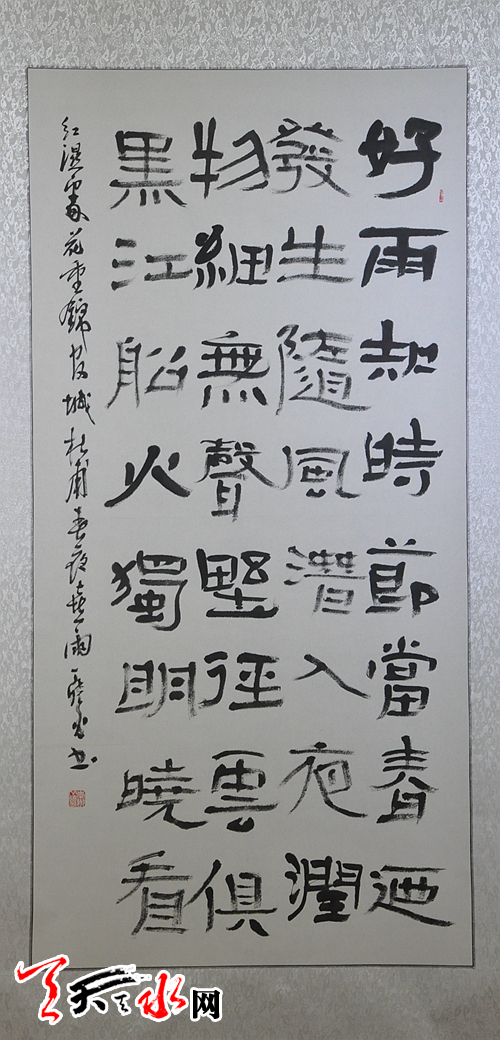 好雨知時節當春迺
發生隨風潛入夜潤
物細無聲墅徑雲俱
黑江船火獨明曉看
红濕處花重錦官城杜甫春夜喜雨书
天天天水网